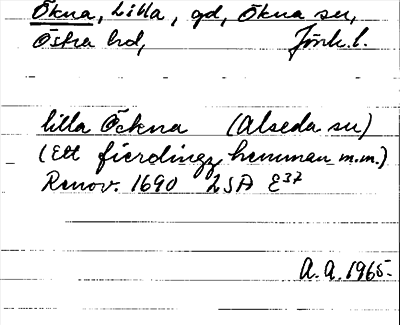 Ökna, Lilla, gd, Ökna sn,
Östra hd, Jönk. l.
lilla Öckna (Alseda sn)
(Ett fierdingz hemman m.m.)
Renov. 1690 LSA E37
A.A. 1965.